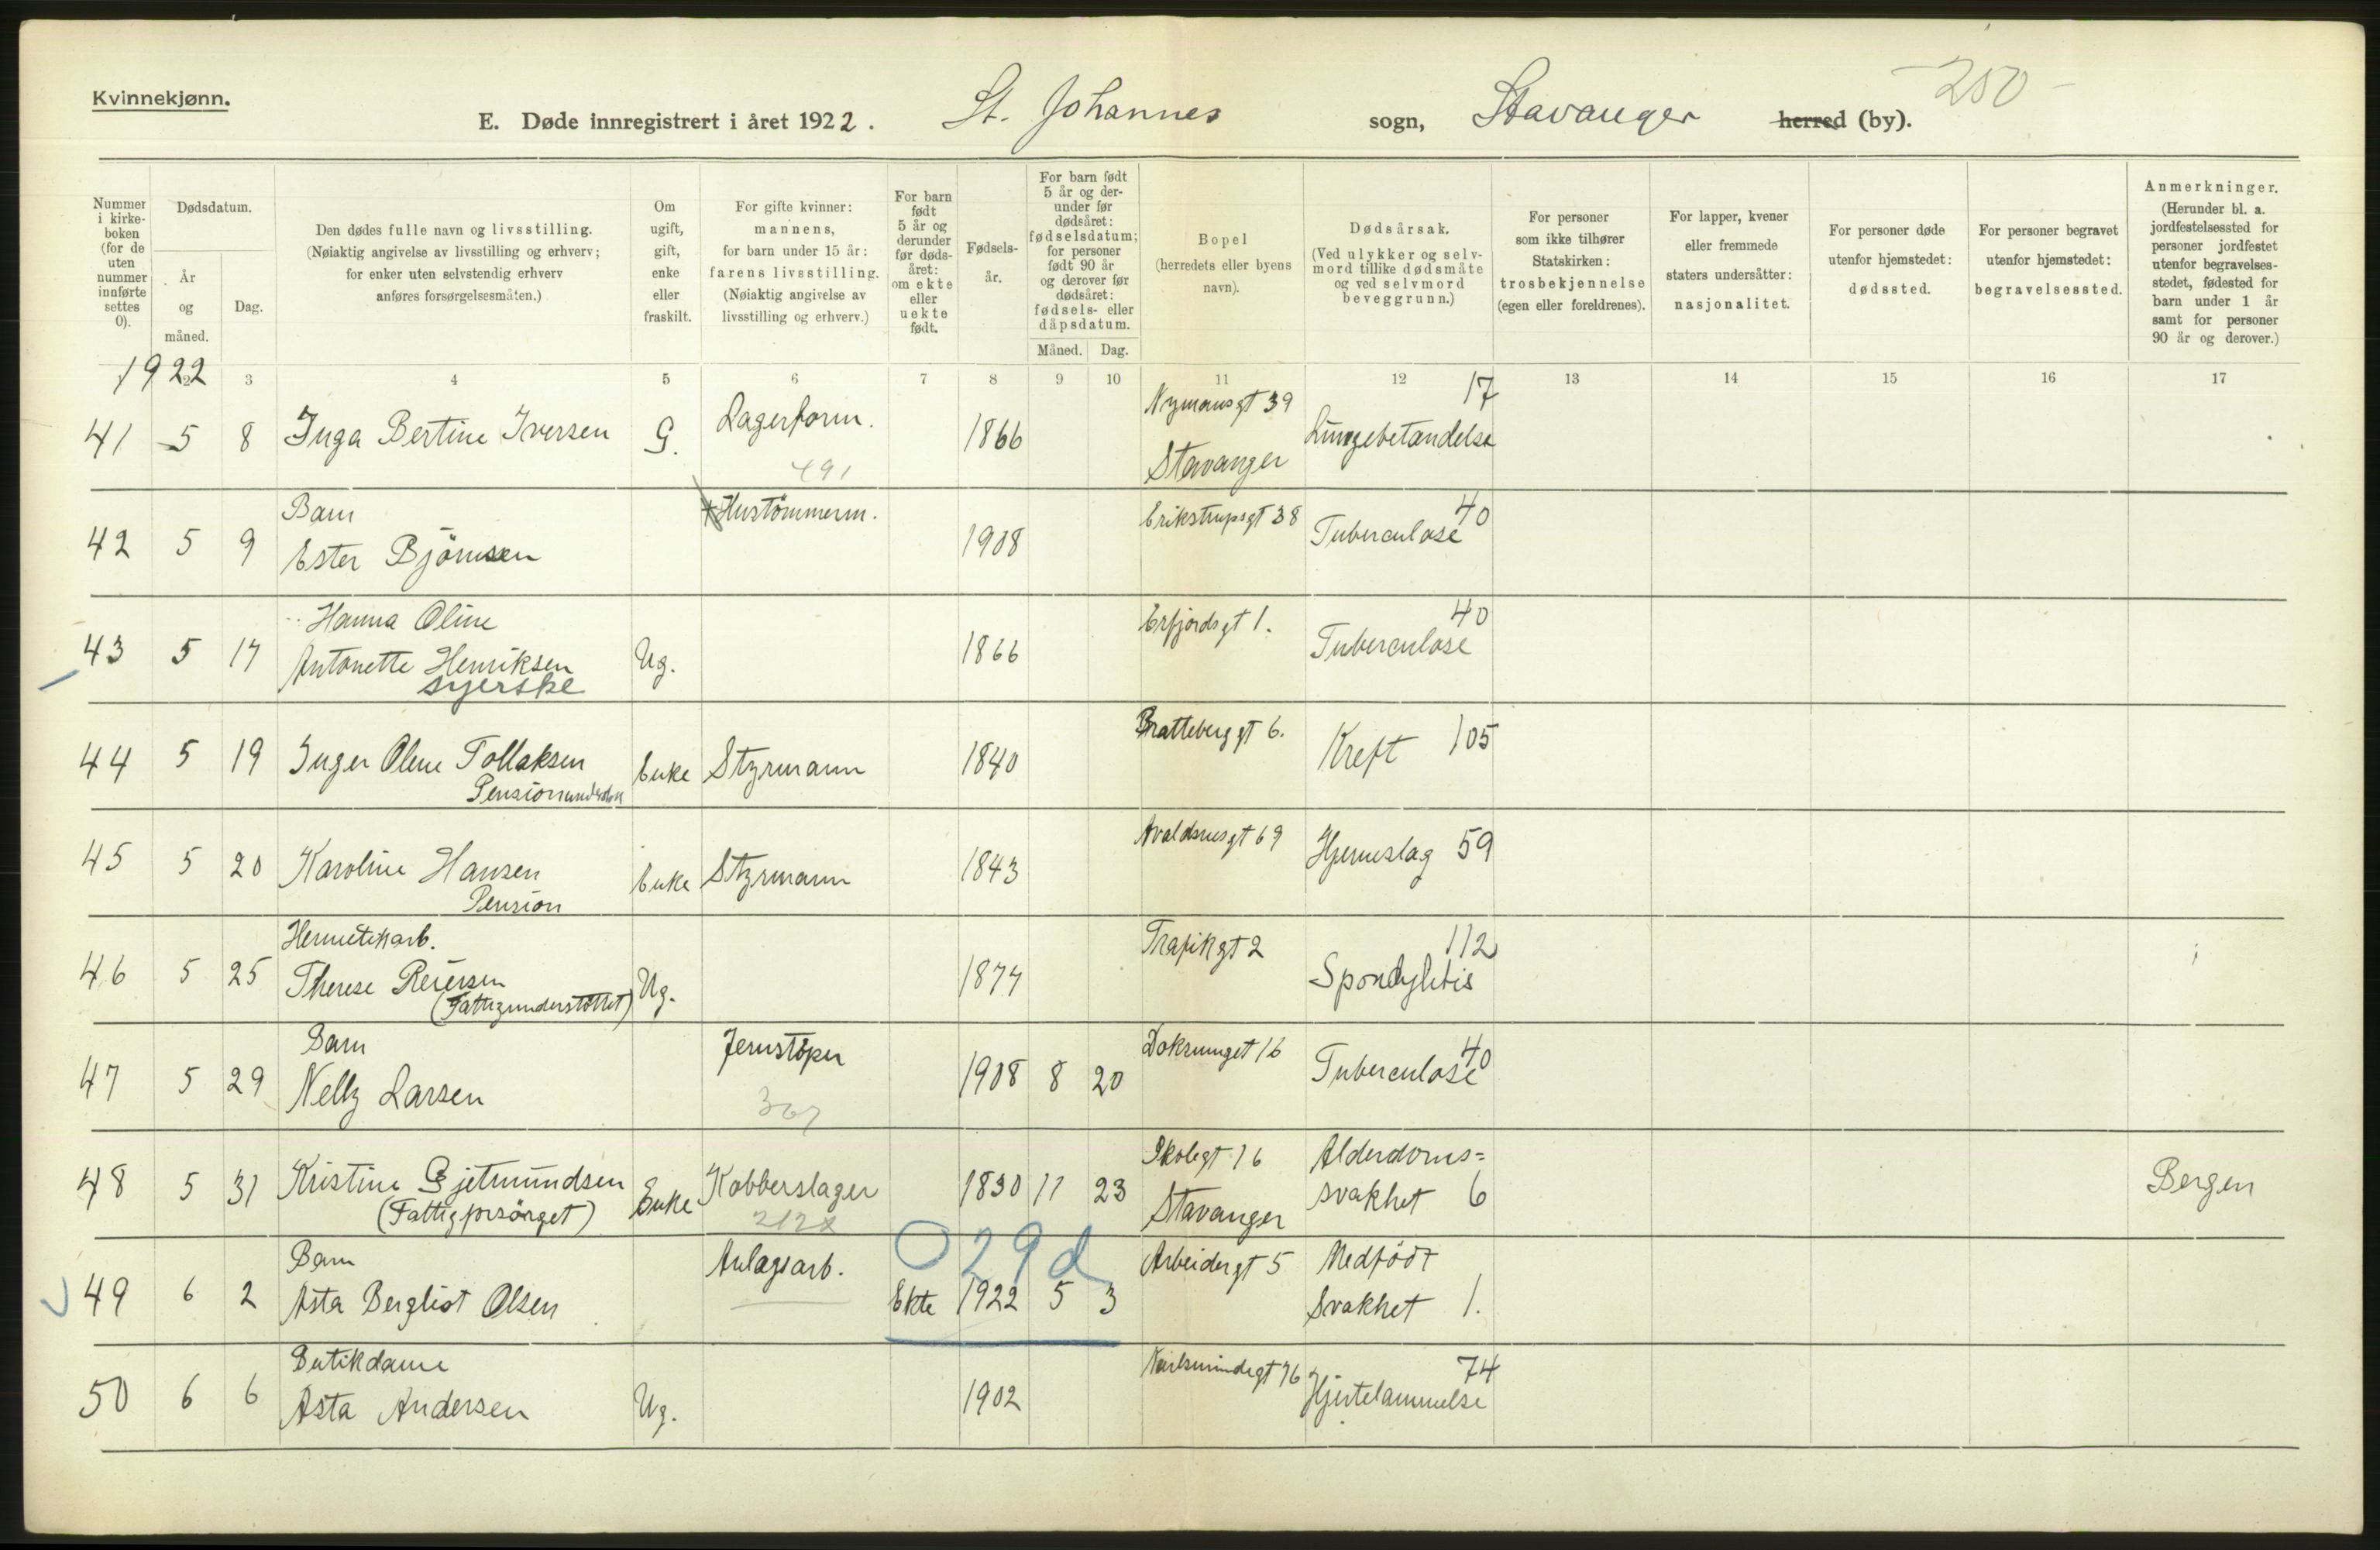 Kvinnekjønn.
E. Døde innregistrert i året 1922. St. Johannes sogn, Stavanger herred (by). -250-
Nummer i kirkeboken (for de uten nummer innførte settes 0).
Dødsdatum.
År og måned.
Dag.
Den dødes fulle navn og livsstilling.
(Nøiaktig angivelse av livsstilling og erhverv;
for enker uten selvstendig erhverv
anføres forsørgelsesmåten.)
Om ugift, gift, enke eller fraskilt.
For gifte kvinner:
mannens,
for barn under 15 år:
farens livsstilling.
(Nøiaktig angivelse av
livsstilling og erhverv.)
For barn født 5 år og derunder før dødsåret: om ekte eller uekte født.
Fødselsår.
For barn født 5 år og derunder før dødsåret: fødselsdatum; for personer født 90 år og derover før dødsåret: fødsels- eller dåpsdatum.
Måned. Dag.
Bopel
(herredets eller byens
navn).
Dødsårsak.
(Ved ulykker og selvmord tillike dødsmåte og ved selvmord beveggrunn.)
For personer
som ikke tilhører
Statskirken:
trosbekjennelse
(egen eller foreldrenes).
For lapper, kvener
eller fremmede
staters undersåtter:
nasjonalitet.
For personer døde
utenfor hjemstedet:
dødssted.
For personer begravet
utenfor hjemstedet:
begravelsessted.
Anmerkninger.
(Herunder bl. a. jordfestelsessted for personer jordfestet utenfor begravelsesstedet, fødested for barn under 1 år samt for personer 90 år og derover.)
1922 2 3 4 5 6 7 8 9 10 11 12 13 14 15 16 17
41 5 8 Inga Bertine Iversen G. Lagerform. 491 1866 Nymansgt 39 Stavanger Lungebetændelse 17
42 5 9 Barn Ester Björnsen Hustömmerm. 1908 Erikstrupsgt 38 Tuberculose 40
43 5 17 Hanna Oline Antonette Henriksen syerske Ug. 1866 Erfjordsgt 1. Tuberculose 40
44 5 19 Inger Olene Tollaksen Enke Styrmann 1840 Brattebergt 6. Kreft 105
45 5 20 Karoline Hansen Pension Enke Styrmann 1843 Avaldsnesgt 69 Hjerneslag 59
46 5 25 Hermetikarb. Therese Reiersen (Fattigunderstöttet) Ug. 1874 Trafikgt 2 Spondylitis 112
47 5 29 Barn Nelly Larsen Jernstöper 367 1908 8 20 Tuberculose 40
48 5 31 Kristine Gjetmundsen (Fattigforsörget) Enke Kobberslager 212x 1830 11 23 Skolegt 16 Stavanger Alderdoms= svakhet 6 Bergen
49 6 2 Barn Asta Bergliot Olsen Anlagsarb. Ekte 1922 5 3 029d Arbeidergt 5 Medfödt Svakhet 1.
50 6 6 Butikdame Asta Andersen Ug. 1902 Karlsmindegt 76 Hjertelammelse 74